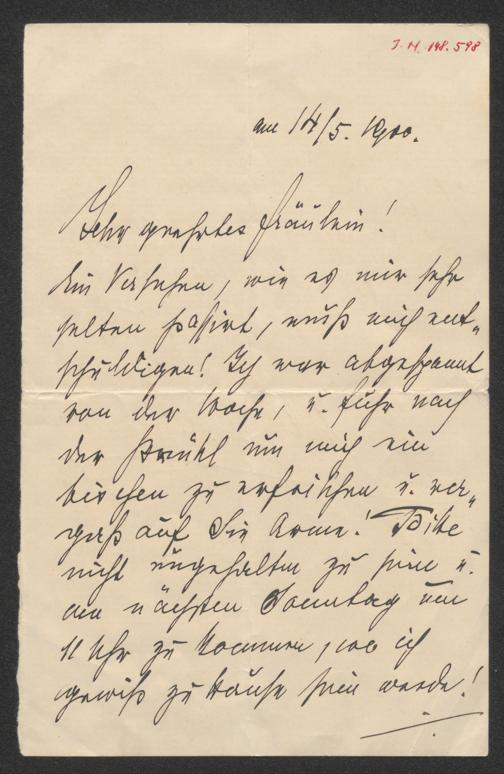 J. N. 148.598
am 14/5. 1900.
Sehr geehrtes Fräulein!
Ein Versehen, wie es mir sehr
selten passirt, muß mich ent„
schuldigen! Ich war abgespannt
von der Woche, u. fuhr nach
der Brühl um mich ein
bischen zu erfrischen u. ver„
gaß auf Sie Arme! Bitte
nicht ungehalten zu sein u.
am nächsten Sonntag um
11 Uhr zu kommen, wo ich
gewiß zu Hause sein werde!